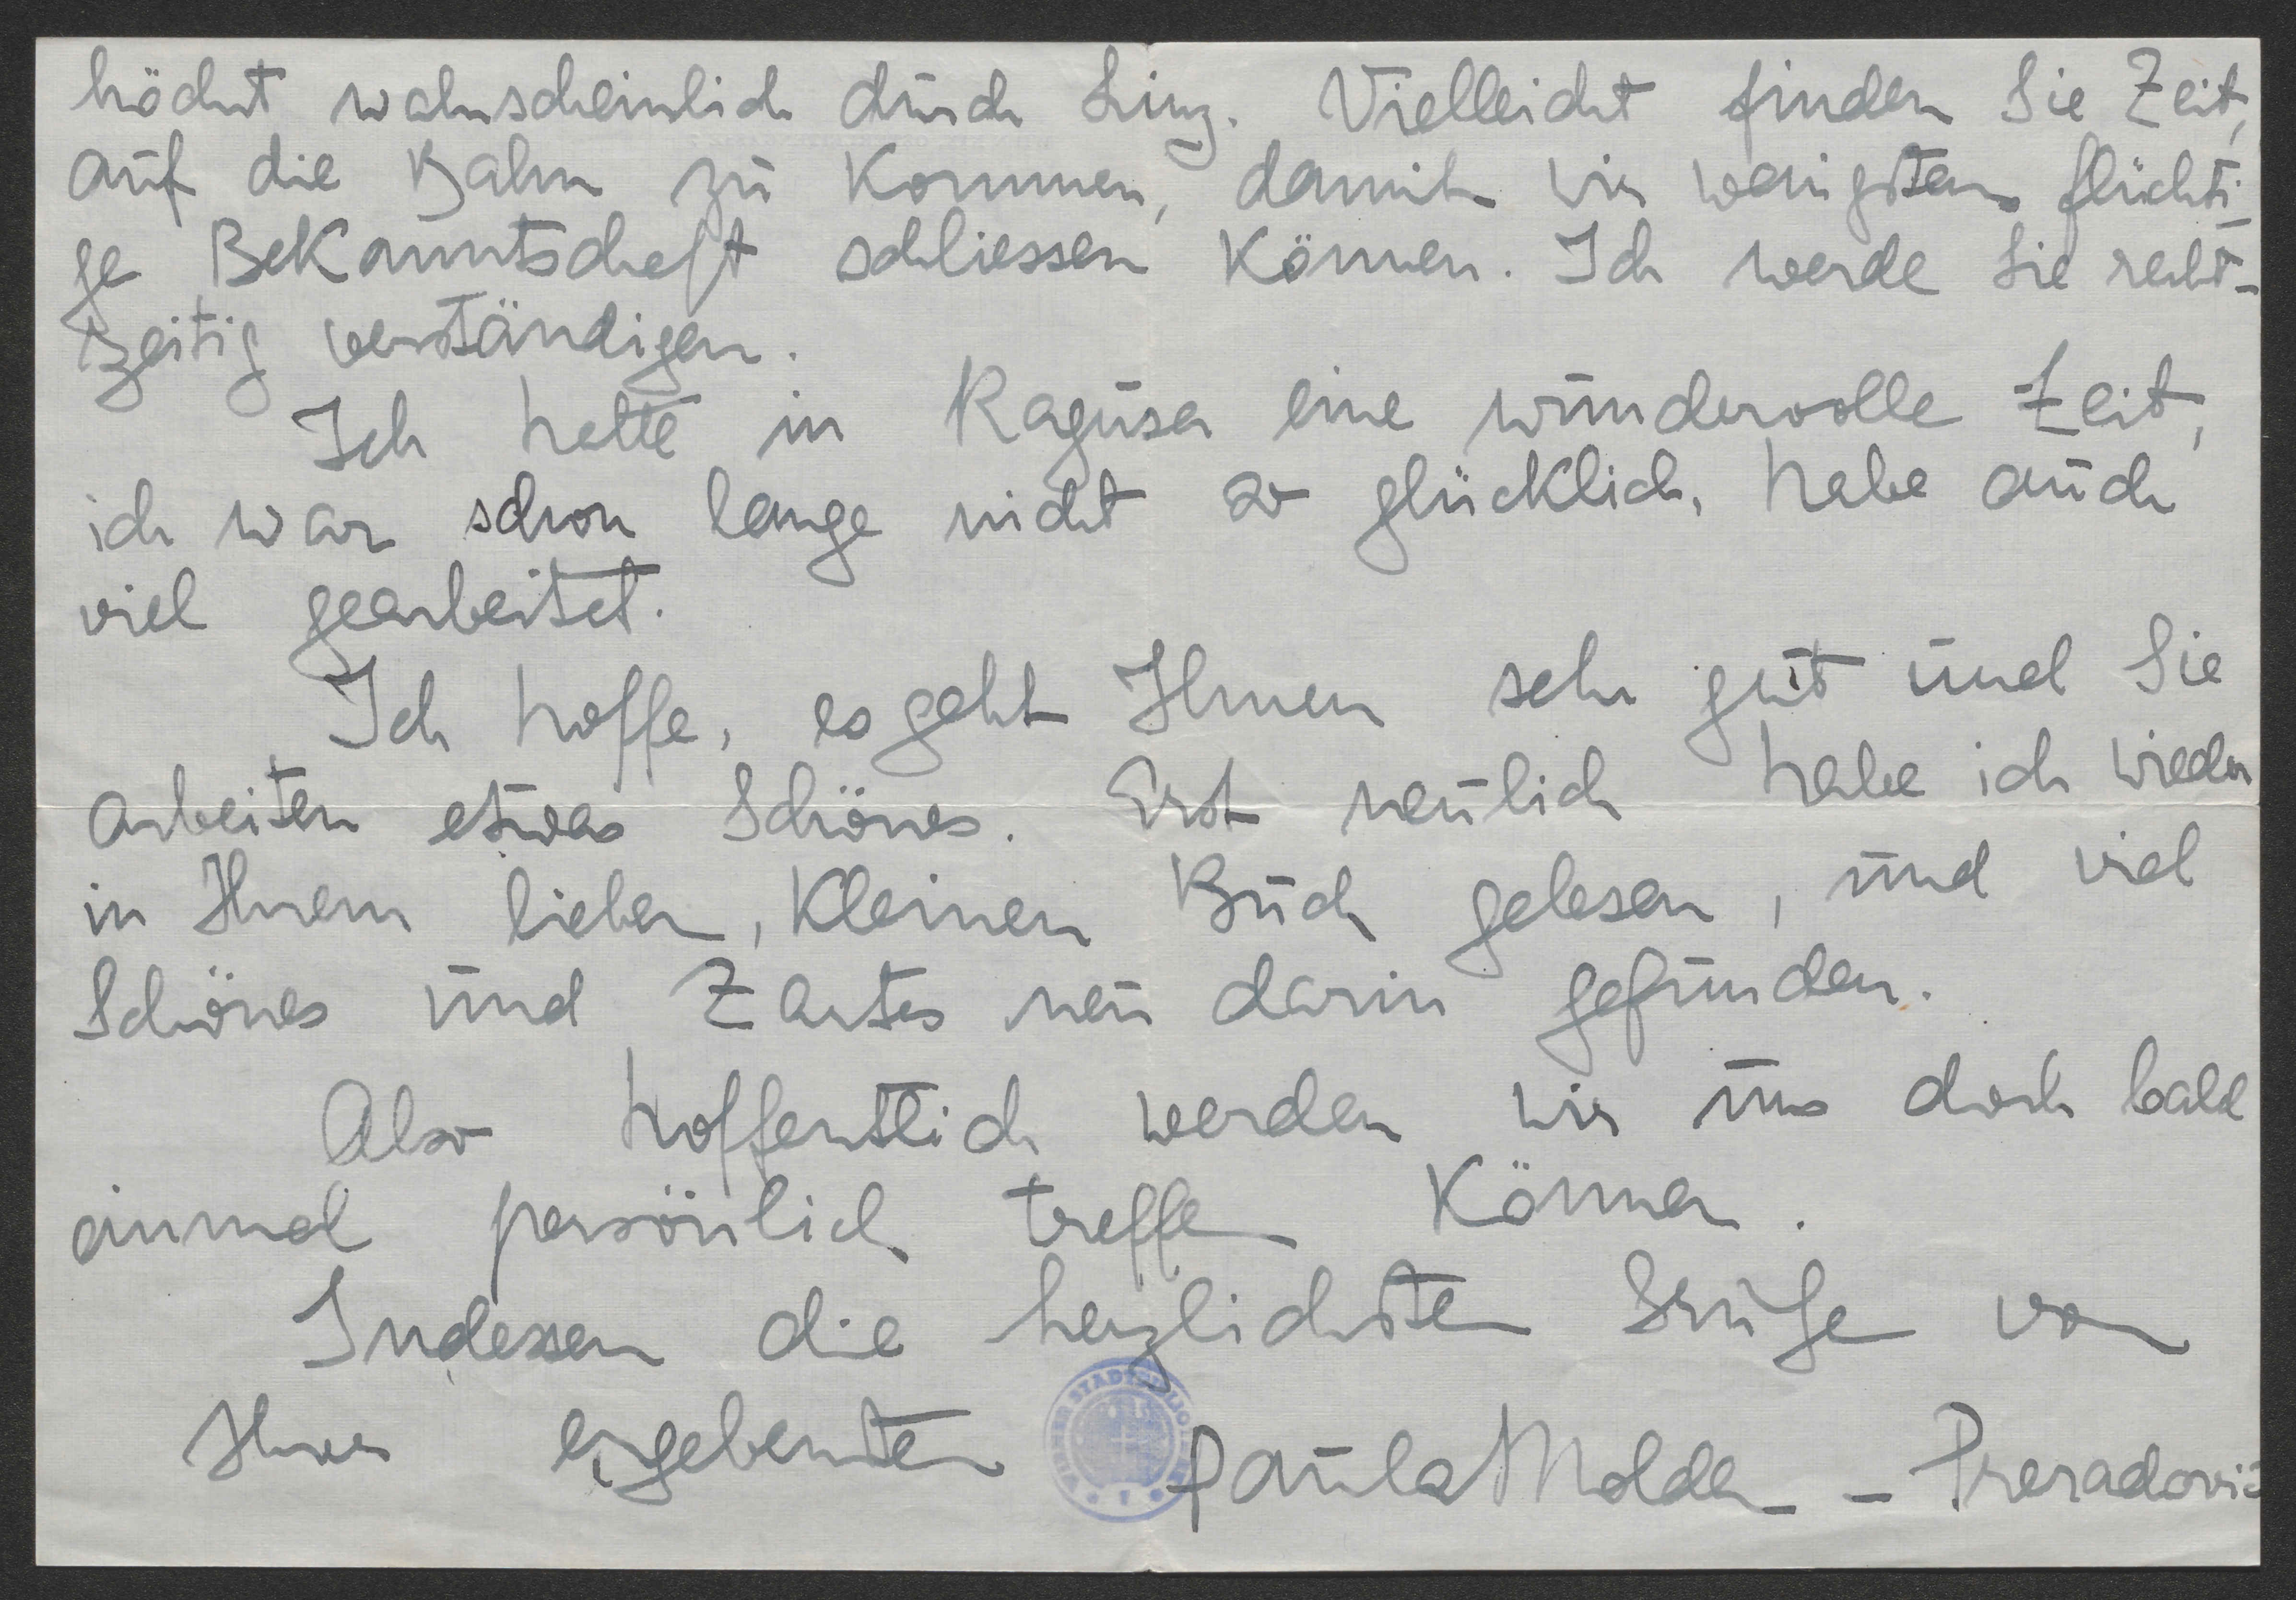 höchst wahrscheinlich durch Linz. Vielleicht finden Sie Zeit,
auf die Bahn zu kommen, damit wir wenigstens flüchti-
ge Bekanntschaft schliessen können. Ich werde Sie recht-
zeitig verständigen.
Ich hatte in Ragusa eine wundervolle Zeit,
ich war schon lange nicht so glücklich, habe auch
viel gearbeitet.
Ich hoffe, es geht Ihnen sehr gut und Sie
arbeiten etwas Schönes. Erst neulich habe ich wieder
in Ihrem lieben, kleinen Buch gelesen, und viel
Schönes und Zartes neu darin gefunden.
Also hoffentlich werden wir uns doch bald
einmal persönlich treffen können.
Indessen die herzlichsten Grüße von
Ihrer ergebensten Paula Molden - Preradović